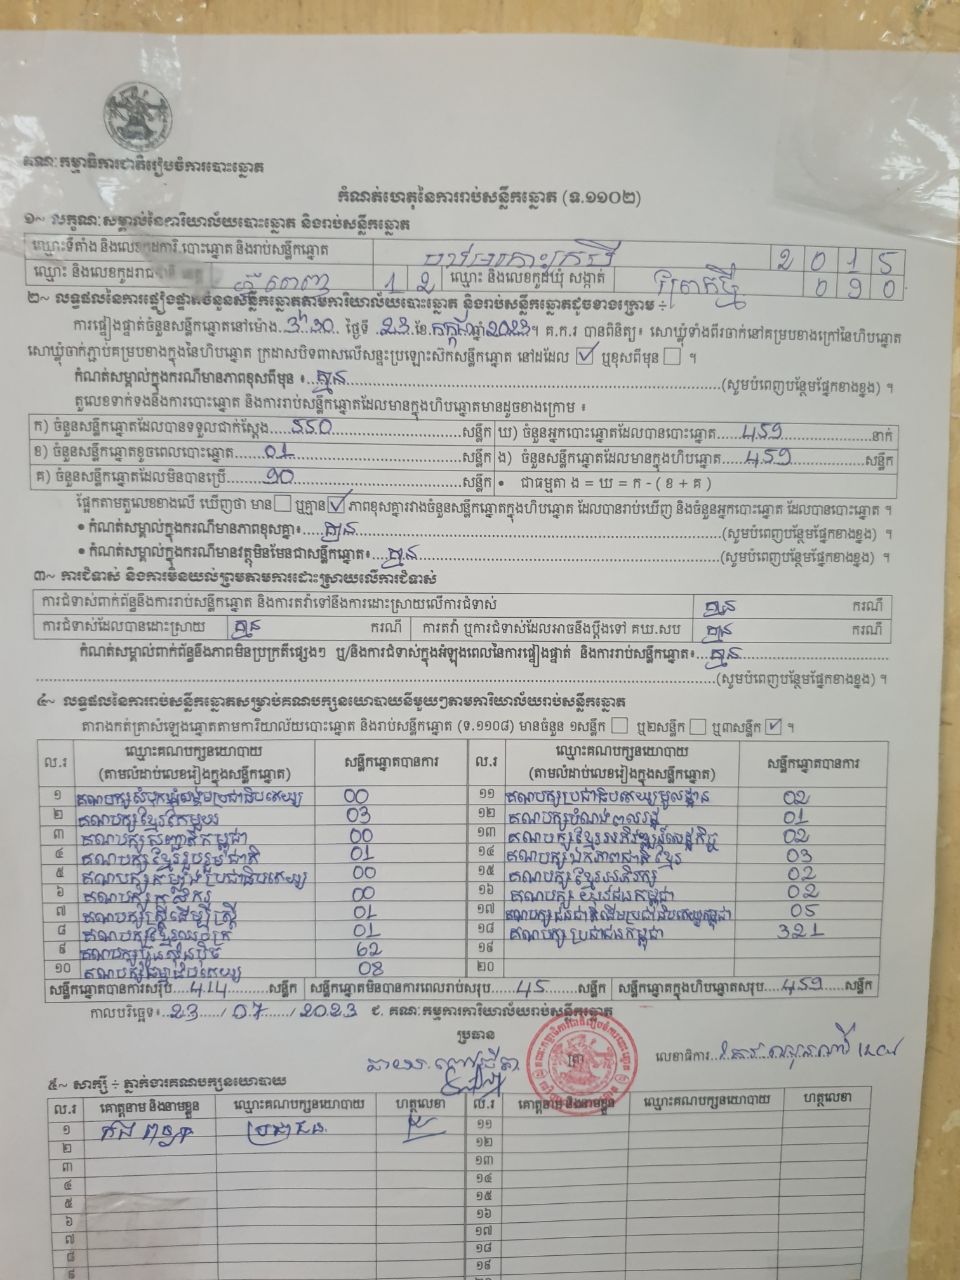 គណៈកម្មាធិការជាតិរៀបចំការបោះឆ្នោត
កំណត់ហេតុនៃការរាប់សន្លឹកឆ្នោត (ទ.១១០២)
១~ លក្ខណៈសម្គាល់នៃការិយាល័យបោះឆ្នោត និងរាប់សន្លឹកឆ្នោត
ឈ្មោះទីតាំង និងលេខកូដការិ.បោះឆ្នោត និងរាប់សន្លឹកឆ្នោត 2 0 1 5
ឈ្មោះ និងលេខកូដរាជធានី ខេត្ត ភ្នំពេញ 1 2 ឈ្មោះ និងលេខកូដឃុំ សង្កាត់ 0 9 0
២~ លទ្ធផលនៃការផ្ទៀងផ្ទាត់ចំនួនសន្លឹកឆ្នោតតាមការិយាល័យបោះឆ្នោត និងរាប់សន្លឹកឆ្នោតដូចខាងក្រោម ÷
ការផ្ទៀងផ្ទាត់ចំនួនសន្លឹកឆ្នោតនៅម៉ោង 3h30 ថ្ងៃទី 23 ខែ កក្កដា ឆ្នាំ 2023 ។ គ.ក.រ បានពិនិត្យ៖ សោឃ្លុំទាំងពីរចាក់នៅគម្របខាងក្រៅនៃហិបឆ្នោត
សោឃ្លុំចាក់ភ្ជាប់គម្របខាងក្នុងនៃហិបឆ្នោត ក្រដាសបិទពាសលើសន្ទះប្រឡោះស៊កសន្លឹកឆ្នោត នៅដដែល ☑ ឬខុសពីមុន ☐ ។
កំណត់សម្គាល់ក្នុងករណីមានភាពខុសពីមុន ៖ គ្មាន (សូមបំពេញបន្ថែមផ្នែកខាងខ្នង) ។
តួលេខទាក់ទងនឹងការបោះឆ្នោត និងការរាប់សន្លឹកឆ្នោតដែលមានក្នុងហិបឆ្នោតមានដូចខាងក្រោម ៖
ក) ចំនួនសន្លឹកឆ្នោតដែលបានទទួលជាក់ស្តែង 550 សន្លឹក ឃ) ចំនួនអ្នកបោះឆ្នោតដែលបានបោះឆ្នោត 459 នាក់
ខ) ចំនួនសន្លឹកឆ្នោតខូចពេលបោះឆ្នោត 01 សន្លឹក ង) ចំនួនសន្លឹកឆ្នោតដែលមានក្នុងហិបឆ្នោត 459 សន្លឹក
គ) ចំនួនសន្លឹកឆ្នោតដែលមិនបានប្រើ 90 សន្លឹក • ជាធម្មតា ង = ឃ = ក - ( ខ + គ )
ផ្អែកតាមតួលេខខាងលើ ឃើញថា មាន ☐ ឬគ្មាន ☑ ភាពខុសគ្នារវាងចំនួនសន្លឹកឆ្នោតក្នុងហិបឆ្នោត ដែលបានរាប់ឃើញ និងចំនួនអ្នកបោះឆ្នោត ដែលបានបោះឆ្នោត ។
• កំណត់សម្គាល់ក្នុងករណីមានភាពខុសគ្នា៖ គ្មាន (សូមបំពេញបន្ថែមផ្នែកខាងខ្នង) ។
• កំណត់សម្គាល់ក្នុងករណីមានវត្ថុមិនមែនជាសន្លឹកឆ្នោត៖ គ្មាន (សូមបំពេញបន្ថែមផ្នែកខាងខ្នង) ។
៣~ ការជំទាស់ និងការមិនយល់ព្រមតាមការដោះស្រាយលើការជំទាស់
ការជំទាស់ពាក់ព័ន្ធនឹងការរាប់សន្លឹកឆ្នោត និងការតវ៉ាទៅនឹងការដោះស្រាយលើការជំទាស់ គ្មាន ករណី
ការជំទាស់ដែលបានដោះស្រាយ គ្មាន ករណី ការតវ៉ា ឬការជំទាស់ដែលអាចនឹងប្តឹងទៅ គឃ.សប គ្មាន ករណី
កំណត់សម្គាល់ពាក់ព័ន្ធនឹងភាពមិនប្រក្រតីផ្សេងៗ ឬ/និងការជំទាស់ក្នុងអំឡុងពេលនៃការផ្ទៀងផ្ទាត់ និងការរាប់សន្លឹកឆ្នោត៖ គ្មាន
(សូមបំពេញបន្ថែមផ្នែកខាងខ្នង) ។
៤~ លទ្ធផលនៃការរាប់សន្លឹកឆ្នោតសម្រាប់គណបក្សនយោបាយនីមួយៗតាមការិយាល័យរាប់សន្លឹកឆ្នោត
តារាងកត់ត្រាសំឡេងឆ្នោតតាមការិយាល័យបោះឆ្នោត និងរាប់សន្លឹកឆ្នោត (ទ.១១០៨) មានចំនួន ១សន្លឹក ☐ ឬ២សន្លឹក ☐ ឬ៣សន្លឹក ☑ ។
ល.រ ឈ្មោះគណបក្សនយោបាយ (តាមលំដាប់លេខរៀងក្នុងសន្លឹកឆ្នោត) សន្លឹកឆ្នោតបានការ ល.រ ឈ្មោះគណបក្សនយោបាយ (តាមលំដាប់លេខរៀងក្នុងសន្លឹកឆ្នោត) សន្លឹកឆ្នោតបានការ
១ គណបក្សសំបុកឃ្មុំសង្គមប្រជាធិបតេយ្យ 00 ១១ គណបក្សប្រជាធិបតេយ្យមូលដ្ឋាន 02
២ គណបក្សខ្មែរតែមួយ 03 ១២ គណបក្សបំណងពលរដ្ឋ 01
៣ គណបក្សសញ្ជាតិកម្ពុជា 00 ១៣ គណបក្សខ្មែរអភិវឌ្ឍន៍សេដ្ឋកិច្ច 02
៤ គណបក្សខ្មែររួបរួមជាតិ 01 ១៤ គណបក្សឯកភាពជាតិខ្មែរ 03
៥ គណបក្សកម្លាំងប្រជាធិបតេយ្យ 00 ១៥ គណបក្សខ្មែរអភិរក្ស 02
៦ គណបក្សកសិករ 00 ១៦ គណបក្សយុវជនកម្ពុជា 02
៧ គណបក្សស្ត្រីដើម្បីស្ត្រី 01 ១៧ គណបក្សជនជាតិដើមប្រជាធិបតេយ្យកម្ពុជា 05
៨ គណបក្សខ្មែរឈប់ក្រ 01 ១៨ គណបក្សប្រជាជនកម្ពុជា 321
៩ គណបក្សហ្វ៊ុនស៊ិនប៉ិច 62 ១៩
១០ គណបក្សធម្មាធិបតេយ្យ 08 ២០
សន្លឹកឆ្នោតបានការសរុប 414 សន្លឹក សន្លឹកឆ្នោតមិនបានការពេលរាប់សរុប 45 សន្លឹក សន្លឹកឆ្នោតក្នុងហិបឆ្នោតសរុប 459 សន្លឹក
កាលបរិច្ឆេទ៖ 23 / 07 / 2023 ជ. គណៈកម្មការការិយាល័យរាប់សន្លឹកឆ្នោត
ប្រធាន
ត្រា
លេខាធិការ
៥~ សាក្សី ÷ ភ្នាក់ងារគណបក្សនយោបាយ
ល.រ គោត្តនាម និងនាមខ្លួន ឈ្មោះគណបក្សនយោបាយ ហត្ថលេខា ល.រ គោត្តនាម និងនាមខ្លួន ឈ្មោះគណបក្សនយោបាយ ហត្ថលេខា
១ ប្រជាជន ១១
២ ១២
៣ ១៣
៤ ១៤
៥ ១៥
៦ ១៦
៧ ១៧
៨ ១៨
៩ ១៩